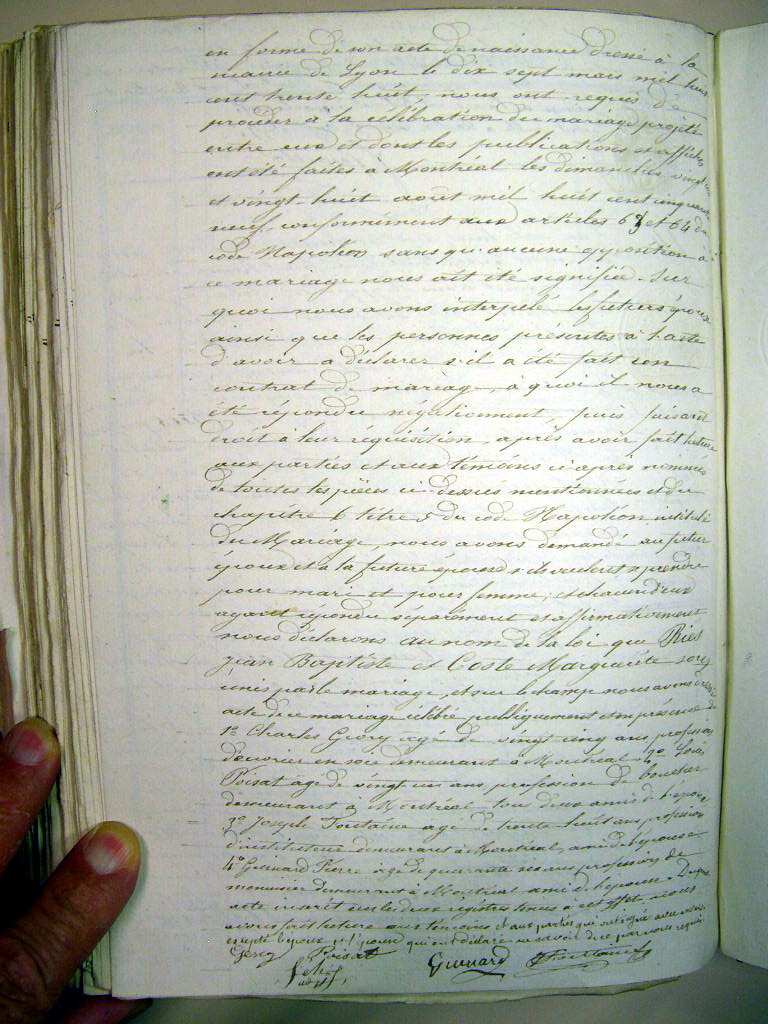 en forme de son acte de naissance dressé à la
mairie de Lyon le dix sept mars mil huit
cent trente huit, nous ont requis de
procéder à la célébration du mariage projeté
entre eux et dont les publications et affiches
ont été faites à Montréal les dimanches vingt un
et vingt huit août mil huit cent cinquante
neuf, conformément aux articles 63 et 64 du
code Napoléon sans qu'aucune opposition à
ce mariage nous ait été signifiée. Sur
quoi nous avons interpelé les futurs époux
ainsi que les personnes présentes à l'acte
d'avoir à déclarer s'il a été fait un
contrat de mariage, à quoi il nous a
été répondu négativement, puis faisant
droit à leur réquisition, après avoir fait lecture
aux parties et aux témoins ci après nommés
de toutes les pièces ci-dessus mentionnées et du
chapitre 6 titre 5 du code Napoléon intitulé
du Mariage, nous avons demandé au futur
époux et à la future épouse s'ils veulent se prendre
pour mari et pour femme, et chacun d'eux
ayant répondu séparément et affirmativement
nous déclarons au nom de la loi que Ries
Jean Baptiste et Coste Marguerite sont
unis par le mariage, et sur le champ nous avons dressé
acte de ce mariage célébré publiquement en présence de
1º Charles Geory âgé de vingt cinq ans profession
d'ouvrier en soie demeurant à Montréal 2º Louis
Poisat âgé de vingt un ans, profession de boucher
demeurant à Montréal tous deux amis de l'époux
3º Joseph Fontaine âgé de trente huit ans profession
d'instituteur demeurant à Montréal, ami de l'épouse
4º Guinard Pierre âgé de quarante neuf ans profession de
menuisier demeurant à Montréal ami de l'épouse. Du présent
acte inscrit sur les deux registres tenus à cet effet, nous
avons fait lecture aux témoins et aux parties qui ont signé avec nous
excepté l'époux et l'épouse qui ont déclaré ne savoir de ce par nous requis
Poisat
Guinard Fontaine